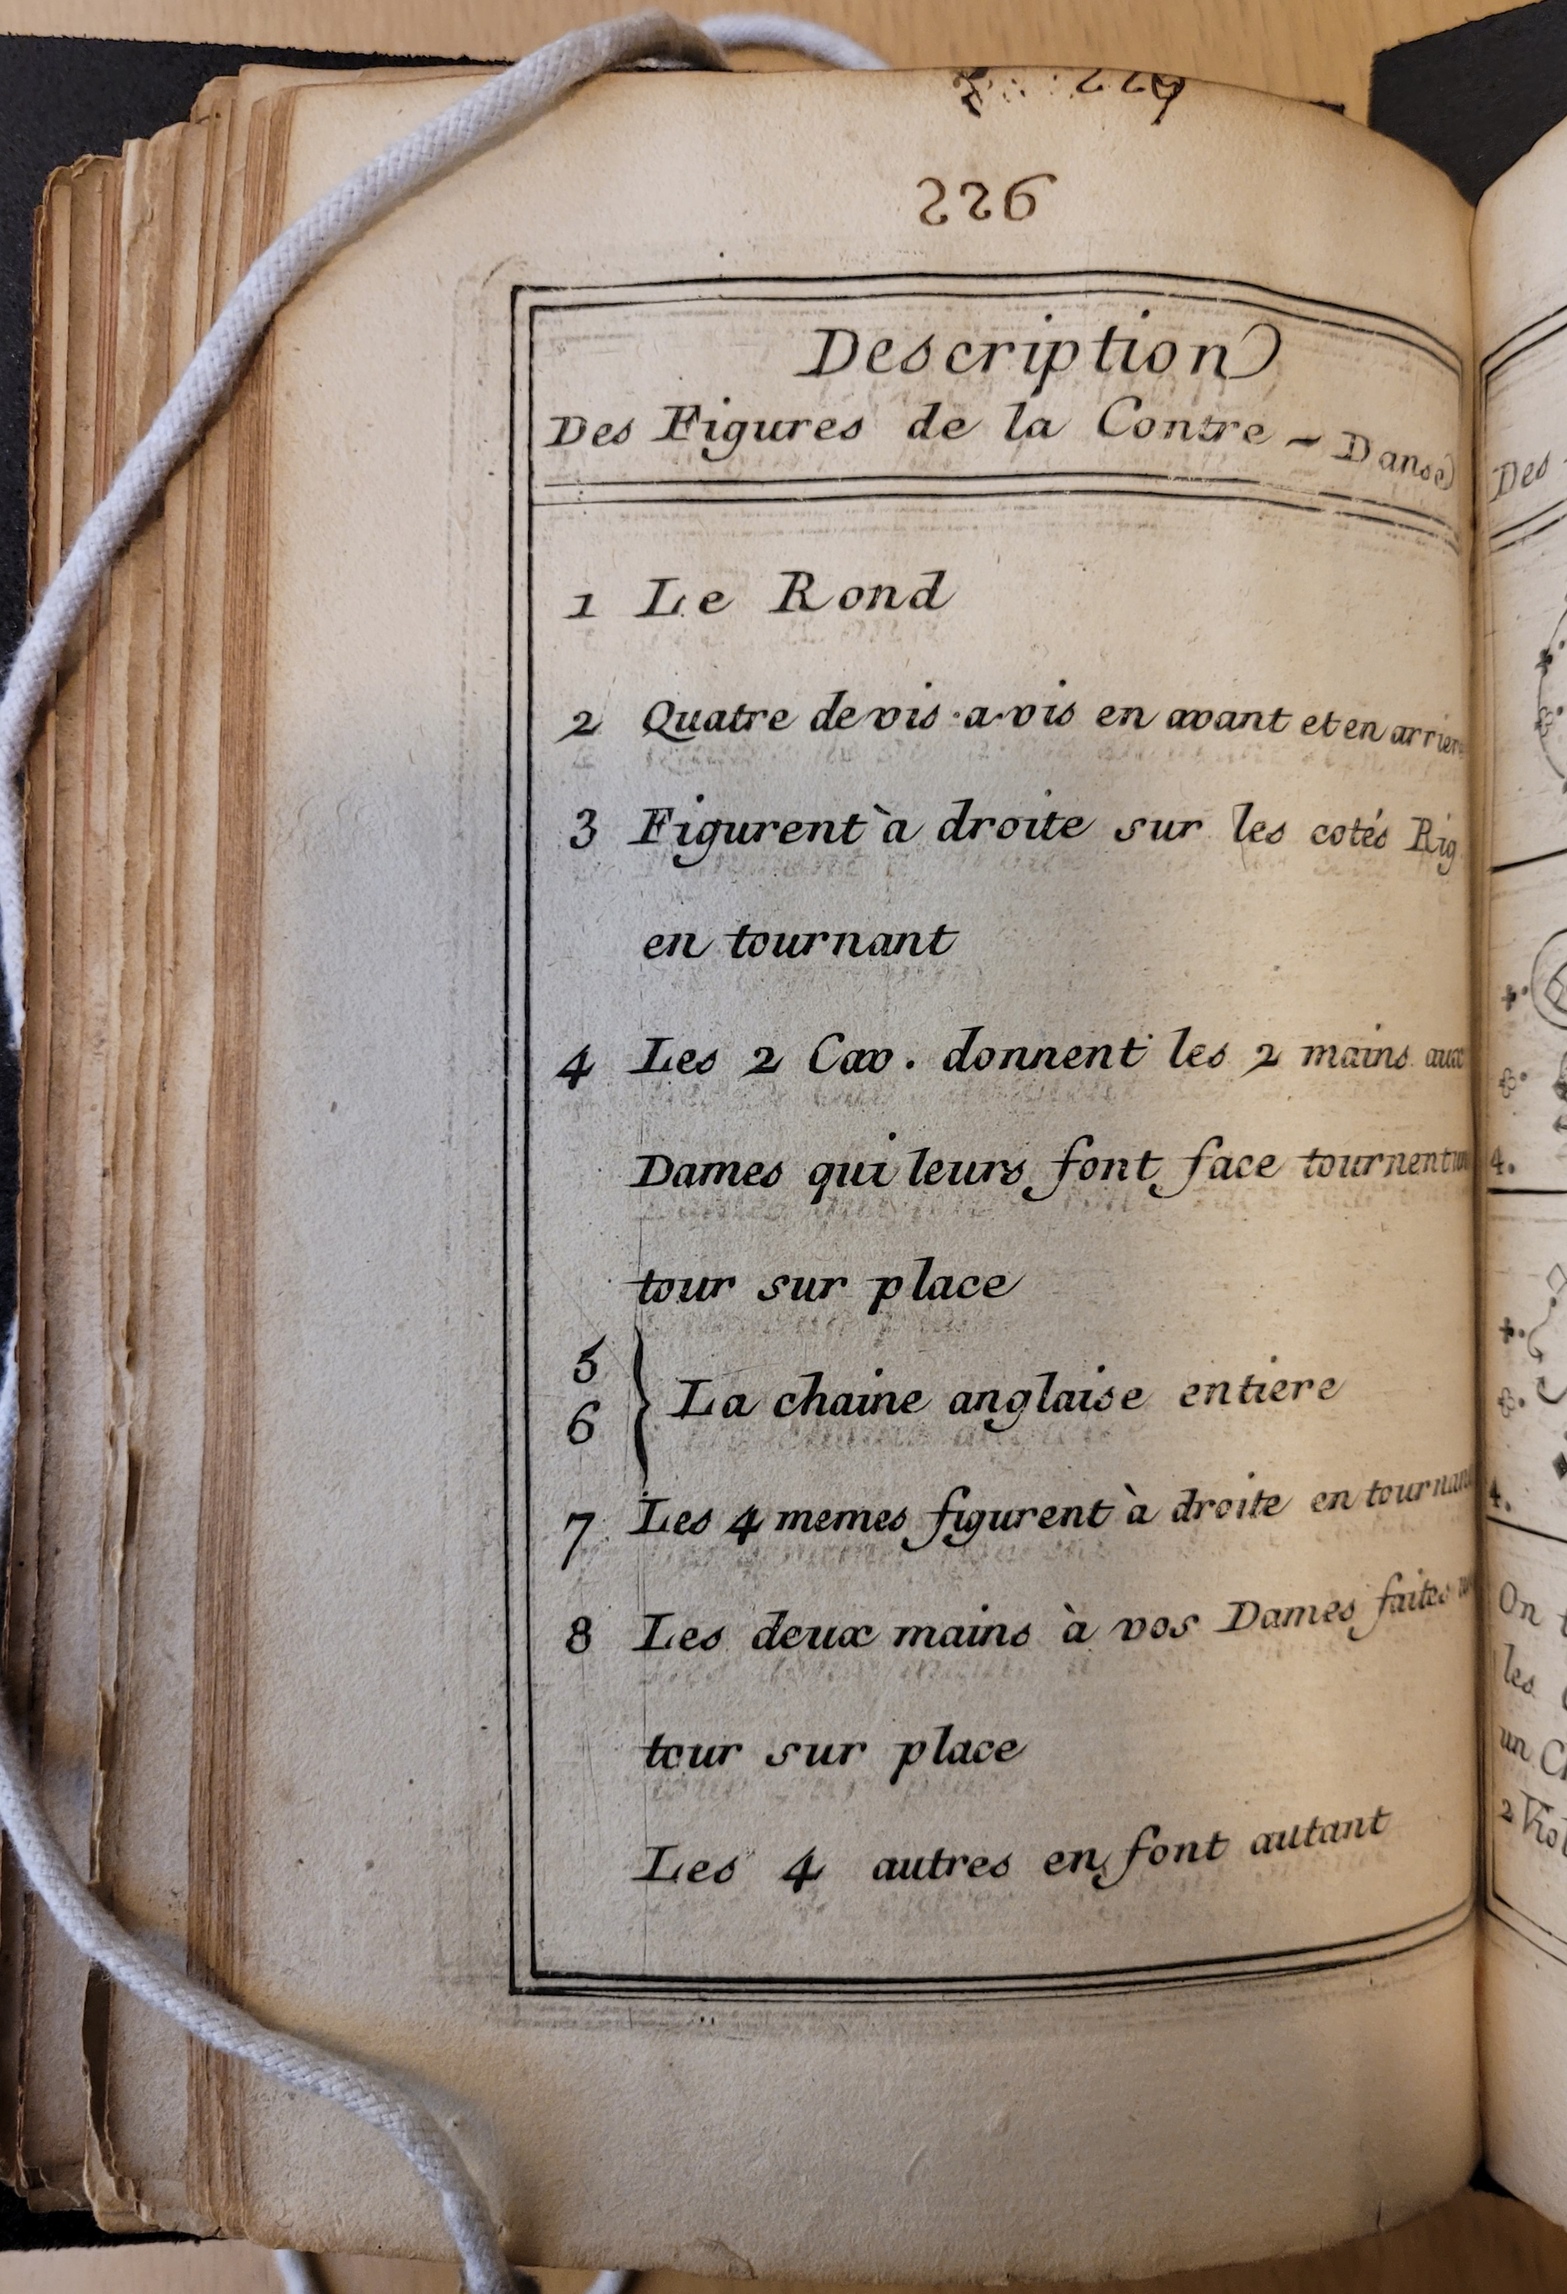 226
Description
Des Figures de la Contre - Danse
1 Le Rond
2 Quatre de vis-a-vis en avant et en arriere
3 Figurent à droite sur les cotés Rig
en tournant
4 Les 2 Cav. donnent les 2 mains aux
Dames qui leurs font face tournent
tour sur place
5
6 } La chaine anglaise entiere
7 Les 4 memes figurent à droite en tournant
8 Les deux mains à vos Dames faites
tour sur place
Les 4 autres en font autant
Des
4.
4.
On
les
un
2